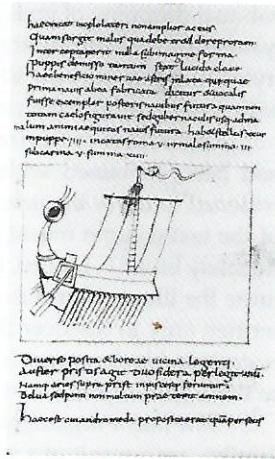 nonamplius
Quam surgit malus qua debet
Inter mala sub imagine forma
Puppis demisso tantum stat lucida clavo
Haec beneficio minervae astris inlata
prima navis ab ea fabricata dicitur & vocalis
fuisse exemplar posteris navibus futura quam non
totam caelo figuravit sed gubernaculis usq ad ma
lum futura habet stellas
in puppe IIII V in malo summo III
sub carina V summa XVIII
Diverso posita & boreae vicina legenti
Auster pristis agit duo sidera perlegit unu
Namq aries supra pristi piscesq feruntur
Belua sed ponti non multum praeterit amnem
Haec est cui andromeda proposita erat quam perseus